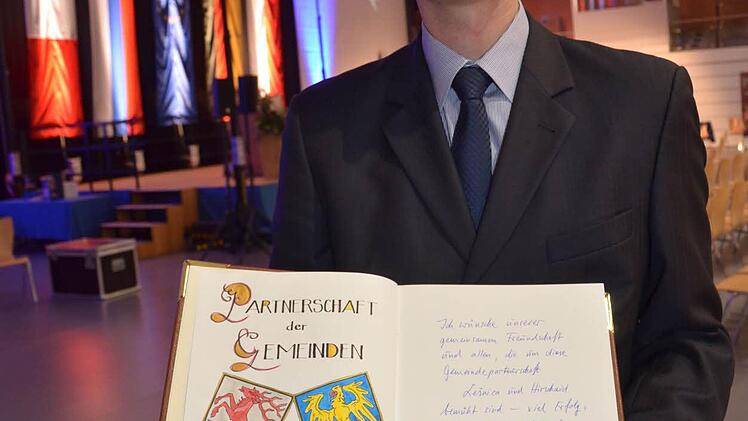 PARTNERSCHAFT
der
GEMEINDEN
Ich wünsche unserer
gemeinsamen Freundschaft
und allen, die um diese
Gemeindepartnerschaft
Leśnica und Hirschaid
bemüht sind – viel Erfolg,